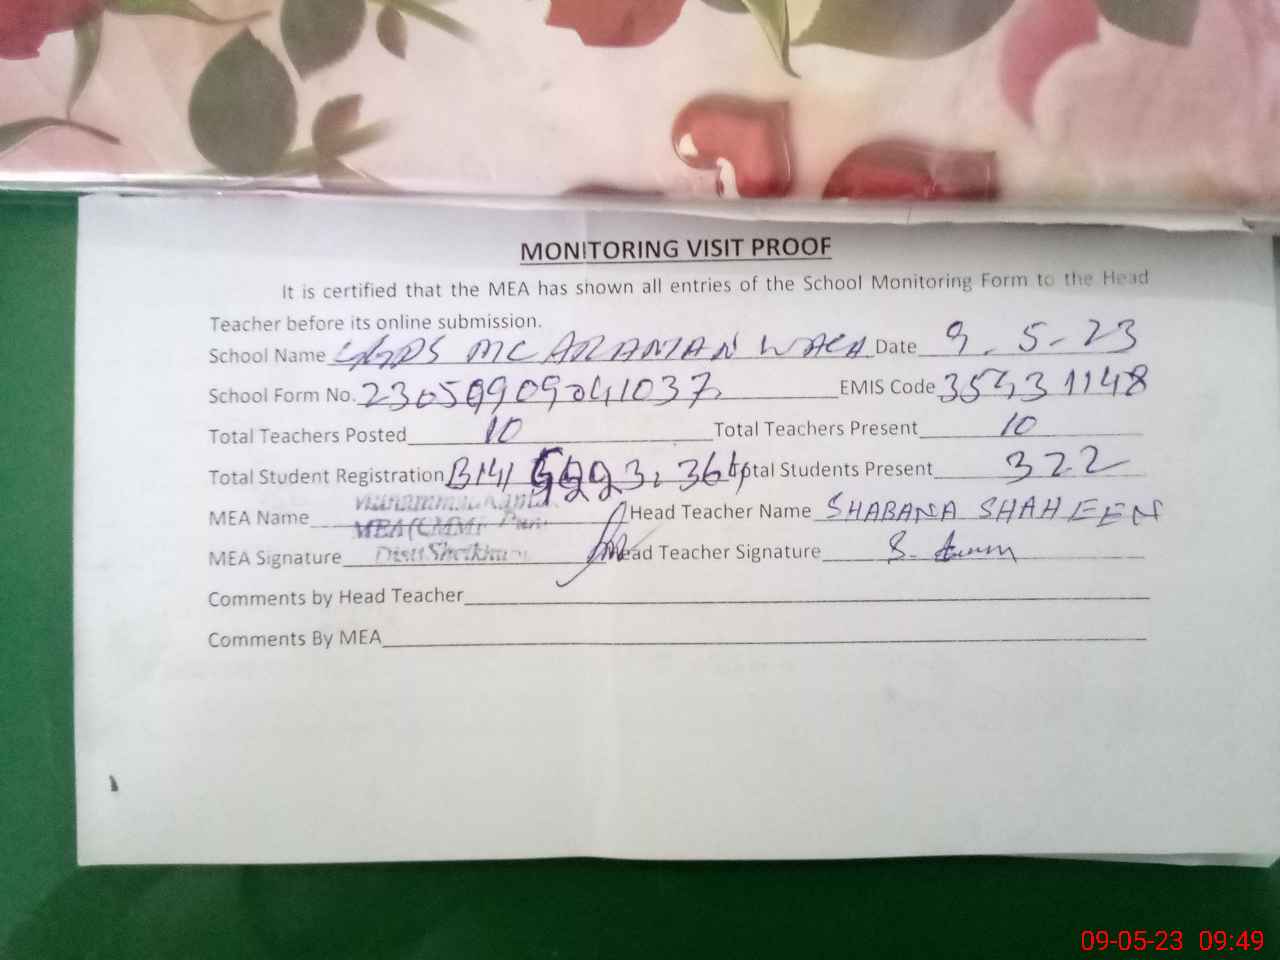 MONITORING VISIT PROOF
It is certified that the MEA has shown all entries of the School Monitoring Form to the Head
Teacher before its online submission.
School Name GGPS MC ARANIAN WALA Date 9.5-23
School Form No. 23059909041037 EMIS Code 35431148
Total Teachers Posted 10 Total Teachers Present 10
Total Student Registration 364 Total Students Present 322
MEA Name MEA (CMMF Head Teacher Name SHABANA SHAHEEN
MEA Signature Head Teacher Signature
Comments by Head Teacher
Comments By MEA
09-05-23 09:49